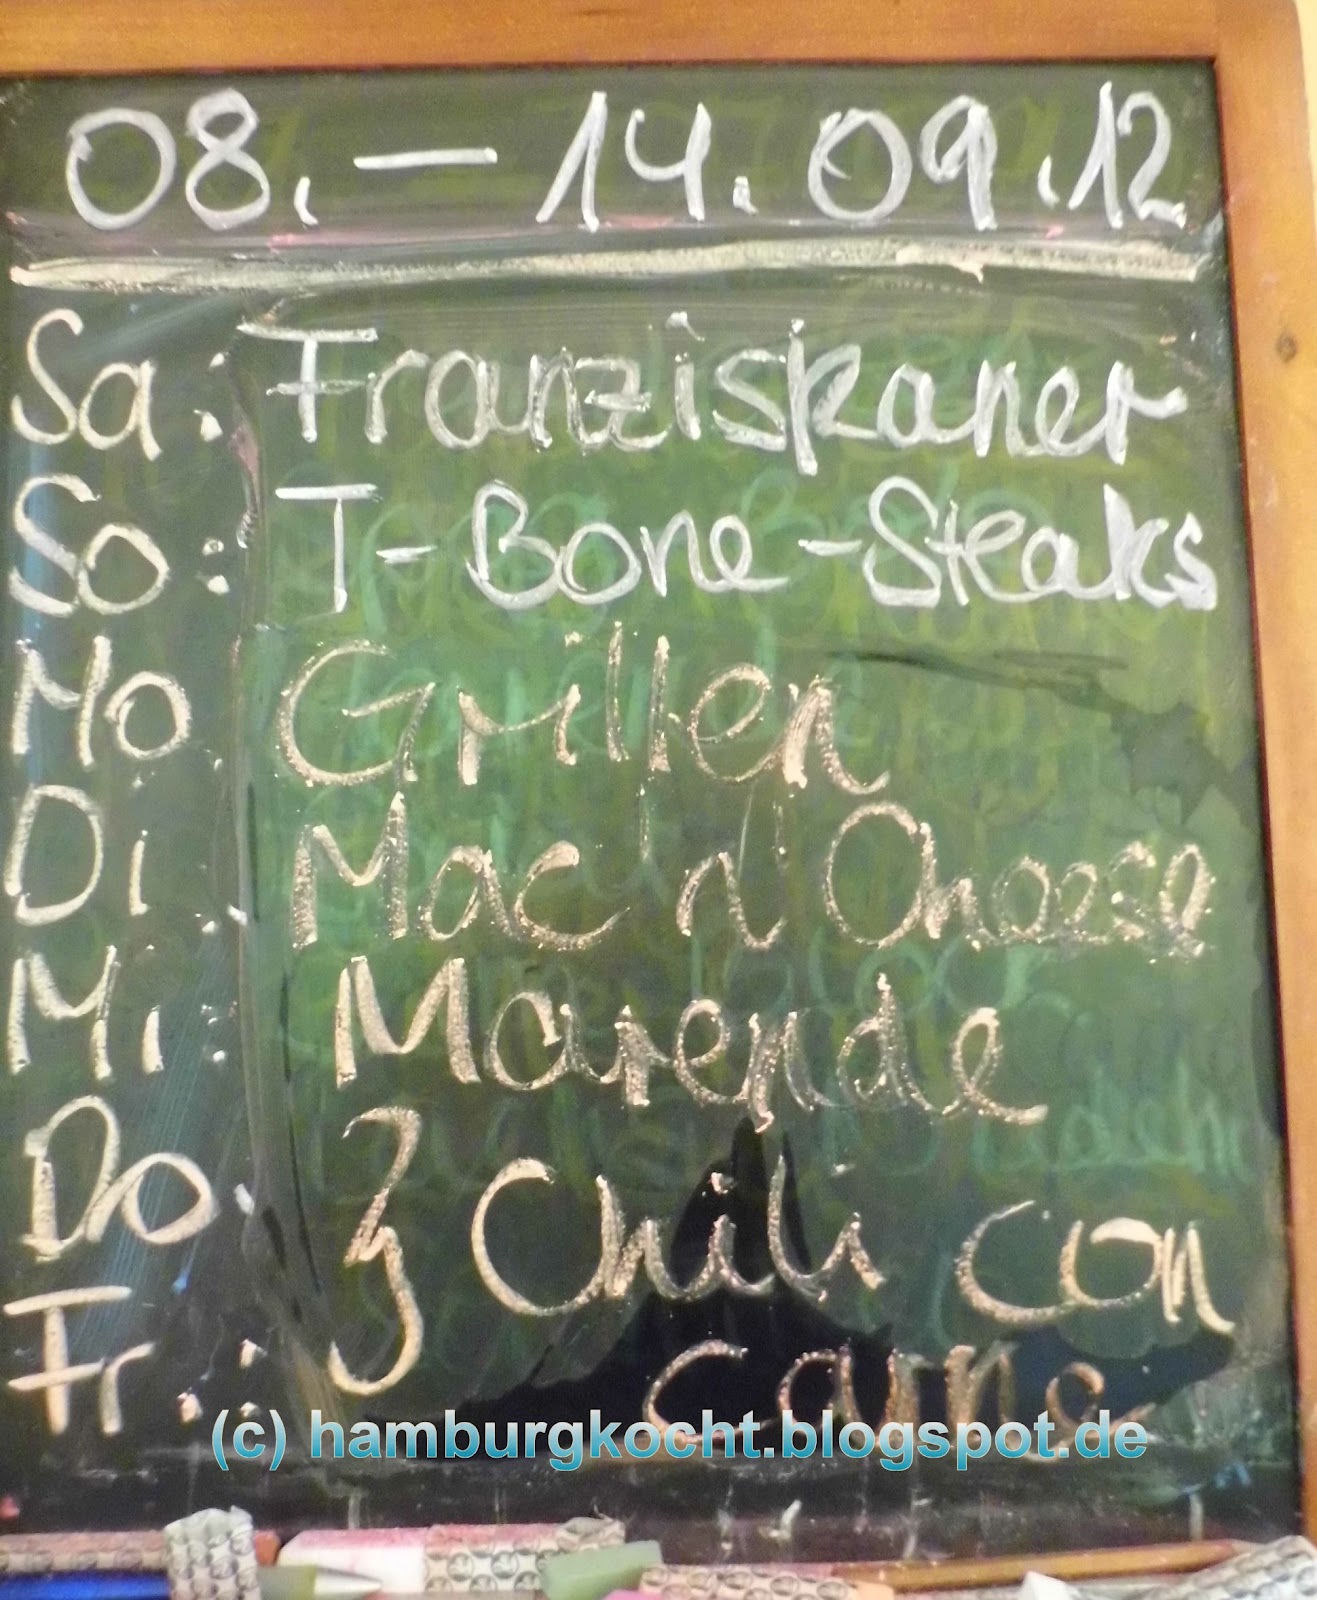 08. - 14.09.12
Sa: Franziskaner
So: T-Bone-Steaks
Mo Grillen
Di: Mac n Cheese
Mi: Marende
Do: } Chili con
Fr: carne
(c) hamburgkocht.blogspot.de